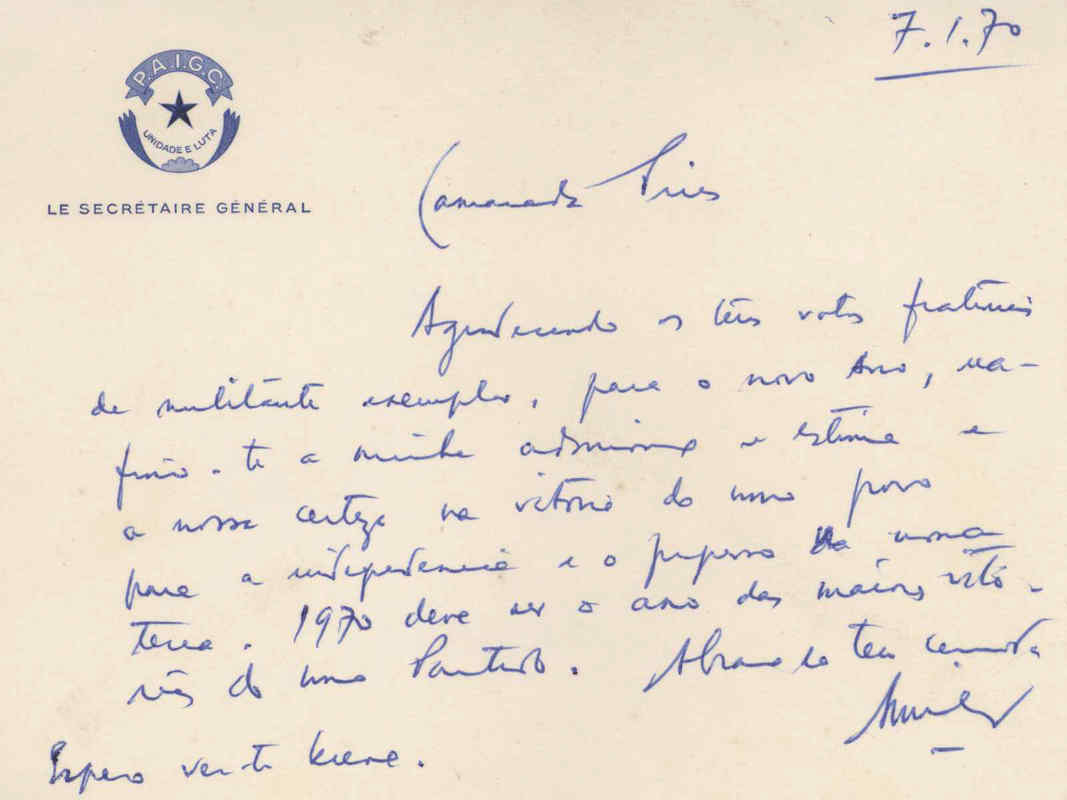 7.1.70
P.A.I.G.C.
UNIDADE E LUTA
LE SECRÉTAIRE GÉNÉRAL
Camarada Pires
Agradecendo os teus votos fraternais
de militante exemplar, para o novo Ano, rea-
firmo-te a minha admiração e estima e
a nossa certeza na vitória do nosso povo
para a independência e o progresso da nossa
terra. 1970 deve ser o ano das maiores vitó-
rias do nosso Partido. Abraço do teu camarada
Espero ver-te breve.